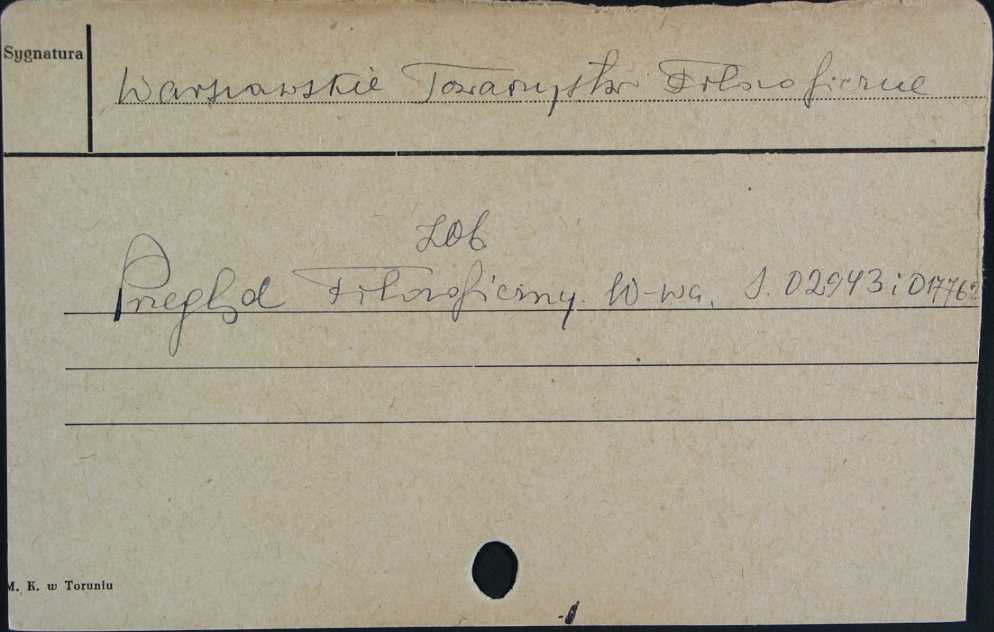 Sygnatura
Warszawskie Towarzystwo Filozoficzne
zob
Przegląd Filozoficzny. W-wa. S. 02943 i 017762
M. K. w Toruniu